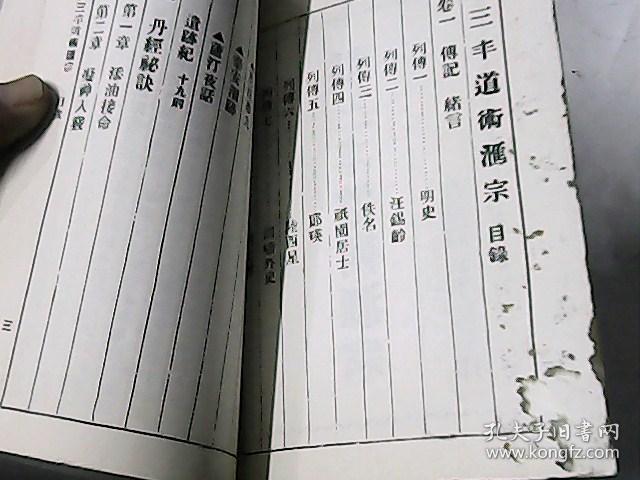 三丰道術滙宗 目錄
卷一 傳記 緒言
列傳一…………明史
列傳二…………汪錫齡
列傳三…………佚名
列傳四…………祇園居士
列傳五…………郎瑛
列傳六…………陸西星
列傳七
遺跡紀 十九則
丹經祕訣
第一章 添油接命
第二章 凝神入竅
三
孔夫子旧书网
www.kongfz.com